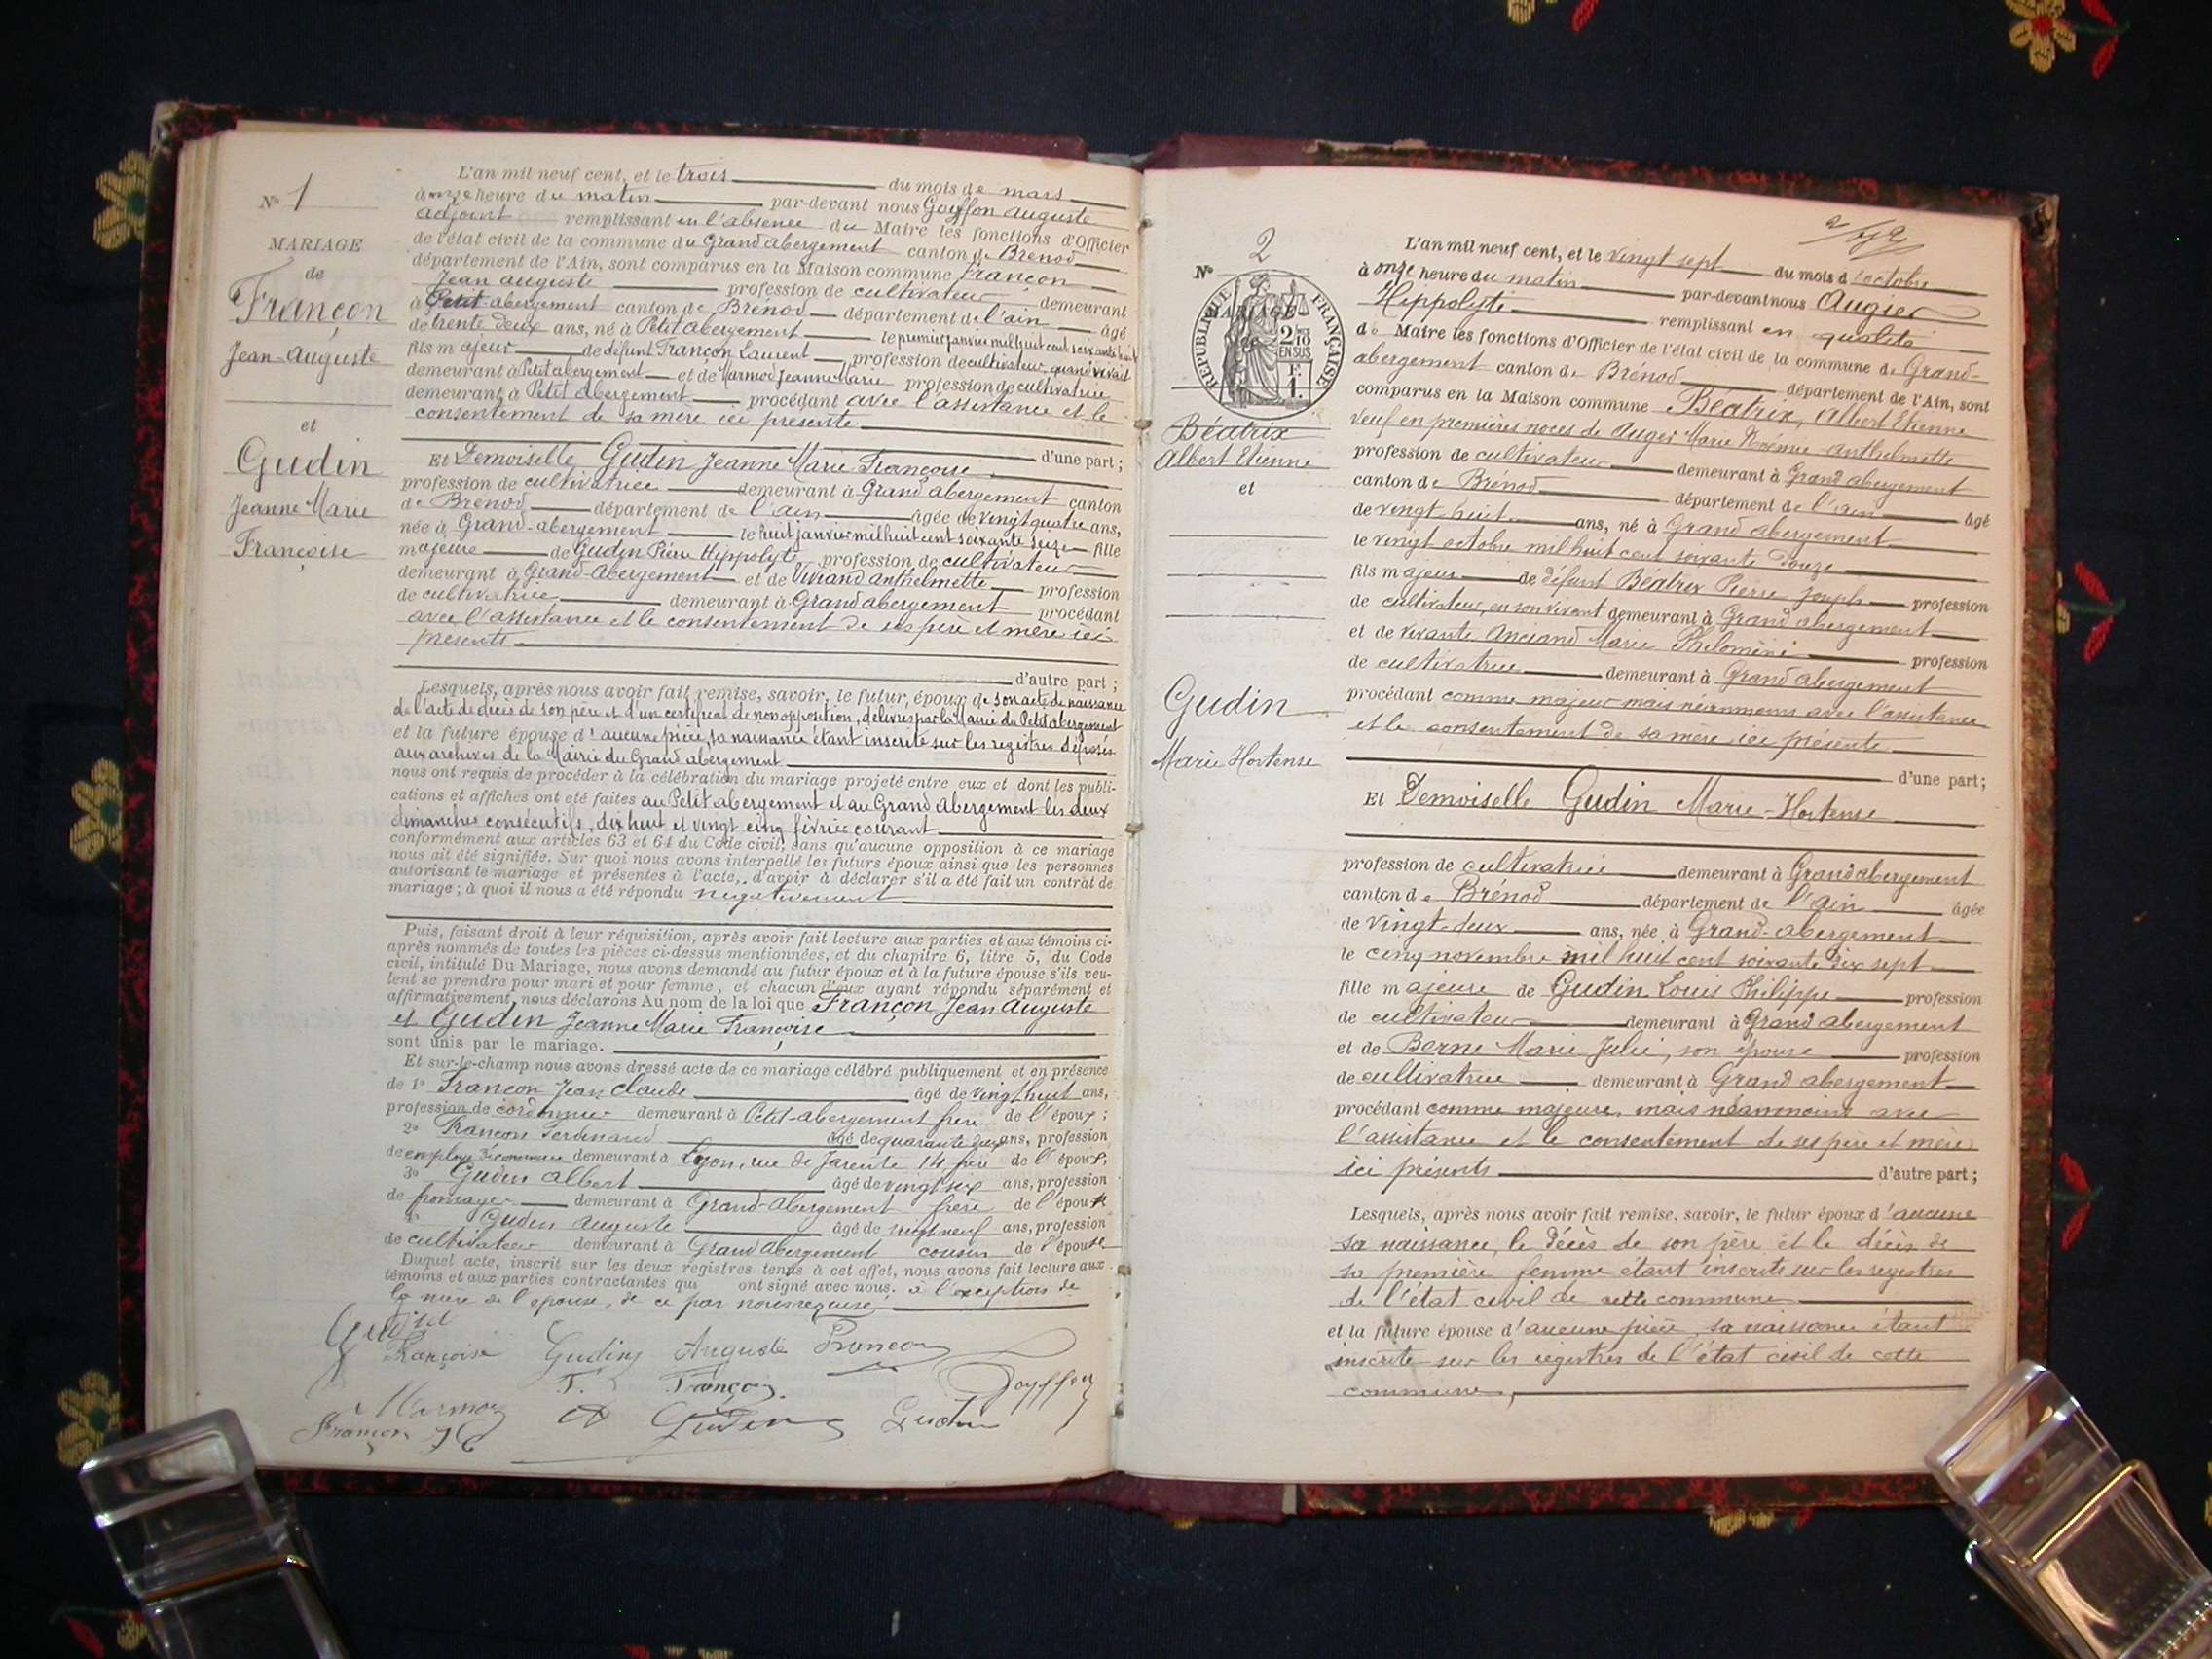 N° 1
MARIAGE
de
Françon
Jean-Auguste
et
Gudin
Jeanne Marie
Françoise
L'an mil neuf cent, et le trois du mois de mars
à onze heure du matin par-devant nous Goyffon Auguste
adjoint remplissant en l'absence du Maire les fonctions d'Officier
de l'état civil de la commune du Grand abergement canton de Brenod
département de l'Ain, sont comparus en la Maison commune Françon
Jean auguste profession de cultivateur demeurant
à Petit abergement canton de Brénod département de l'ain âgé
de trente deux ans, né à Petit abergement le premier janvier mil huit cent soixante huit
fils majeur de défunt Françon Laurent profession de cultivateur quand vivait
demeurant à Petit abergement et de Marmod Jeanne Marie profession de cultivatrice
demeurant à Petit Abergement procédant avec l'assistance et le
consentement de sa mère ici présente
d'une part ;
Et Demoiselle Gudin Jeanne Marie Françoise
profession de cultivatrice demeurant à Grand abergement canton
de Brenod département de l'ain âgée de vingt quatre ans,
née à Grand-abergement le huit janvier mil huit cent soixante seize fille
majeure de Gudin Pierre Hippolyte profession de cultivateur
demeurant à Grand-Abergement et de Viviand anthelmette profession
de cultivatrice demeurant à Grand abergement procédant
avec l'assistance et le consentement de ses père et mère ici
présents
d'autre part ;
Lesquels, après nous avoir fait remise, savoir, le futur, époux de son acte de naissance
de l'acte de décès de son père et d'un certificat de non opposition, délivrés par la Mairie du Petit abergement
et la future épouse d'aucune pièce, sa naissance étant inscrite sur les registres déposés
aux archives de la Mairie du Grand abergement
nous ont requis de procéder à la célébration du mariage projeté entre eux et dont les publi-
cations et affiches ont été faites au Petit abergement et au Grand Abergement les deux
dimanches consécutifs, dix huit et vingt cinq février courant
conformément aux articles 63 et 64 du Code civil, sans qu'aucune opposition à ce mariage
nous ait été signifiée. Sur quoi nous avons interpellé les futurs époux ainsi que les personnes
autorisant le mariage et présentes à l'acte, d'avoir à déclarer s'il a été fait un contrat de
mariage ; à quoi il nous a été répondu négativement
Puis, faisant droit à leur réquisition, après avoir fait lecture aux parties et aux témoins ci-
après nommés de toutes les pièces ci-dessus mentionnées, et du chapitre 6, titre 5, du Code
civil, intitulé Du Mariage, nous avons demandé au futur époux et à la future épouse s'ils veu-
lent se prendre pour mari et pour femme, et chacun d'eux ayant répondu séparément et
affirmativement, nous déclarons Au nom de la loi que Françon Jean Auguste
et Gudin Jeanne Marie Françoise
sont unis par le mariage.
Et sur-le-champ nous avons dressé acte de ce mariage célébré publiquement et en présence
de 1° Françon Jean claude âgé de vingt huit ans,
profession de cordonnier demeurant à Petit-abergement frère de l'époux ;
2° Françon Ferdinand âgé de quarante deux ans, profession
de employé de commerce demeurant à Lyon, rue de Jarente 14 frère de l'époux,
3° Gudin albert âgé de vingt six ans, profession
de fromager demeurant à Grand-Abergement frère de l'épouse
4° Gudin auguste âgé de vingt neuf ans, profession
de cultivateur demeurant à Grand Abergement cousin de l'épouse
Duquel acte, inscrit sur les deux registres tenus à cet effet, nous avons fait lecture aux
témoins et aux parties contractantes qui ont signé avec nous. à l'exception de
la mère de l'épouse, de ce par nous requise
Gudin
Françoise Gudin Auguste Françon
F. Françon. Goyffon
Marmod A Gudin Gudin
Françon JC
2
N°
RÉPUBLIQUE FRANÇAISE
MARIAGE
de
2/10
EN SUS
F.
1.
Béatrix
Albert Etienne
et
Gudin
Marie Hortense
L'an mil neuf cent, et le vingt sept du mois d'octobre
à onze heure du matin par-devant nous Augier
Hippolyte remplissant en qualité
de Maire les fonctions d'Officier de l'état civil de la commune de Grand-
abergement canton de Brénod département de l'Ain, sont
comparus en la Maison commune Béatrix, Albert Etienne
veuf en premières noces de Auger Marie Noémie Anthelmette
profession de cultivateur demeurant à Grand abergement
canton de Brénod département de l'ain âgé
de vingt huit ans, né à Grand abergement
le vingt octobre mil huit cent soixante douze
fils majeur de défunt Béatrix Pierre joseph profession
de cultivateur, en son vivant demeurant à Grand abergement
et de vivante Anciand Marie Philomène profession
de cultivatrice demeurant à Grand abergement
procédant comme majeur mais néanmoins avec l'assistance
et le consentement de sa mère ici présente
d'une part;
Et Demoiselle Gudin Marie-Hortense
profession de cultivatrice demeurant à Grand abergement
canton de Brénod département de l'ain âgée
de vingt-deux ans, née à Grand-abergement
le cinq novembre mil huit cent soixante dix sept
fille majeure de Gudin Louis Philippe profession
de cultivateur demeurant à Grand abergement
et de Berne Marie Julie, son épouse profession
de cultivatrice demeurant à Grand abergement
procédant comme majeure, mais néanmoins avec
l'assistance et le consentement de ses père et mère
ici présents d'autre part ;
Lesquels, après nous avoir fait remise, savoir, le futur époux d'aucune
sa naissance, le décès de son père et le décès de
sa première femme étant inscrits sur les registres
de l'état civil de cette commune
et la future épouse d'aucune pièce, sa naissance étant
inscrite sur les registres de l'état civil de cette
commune,